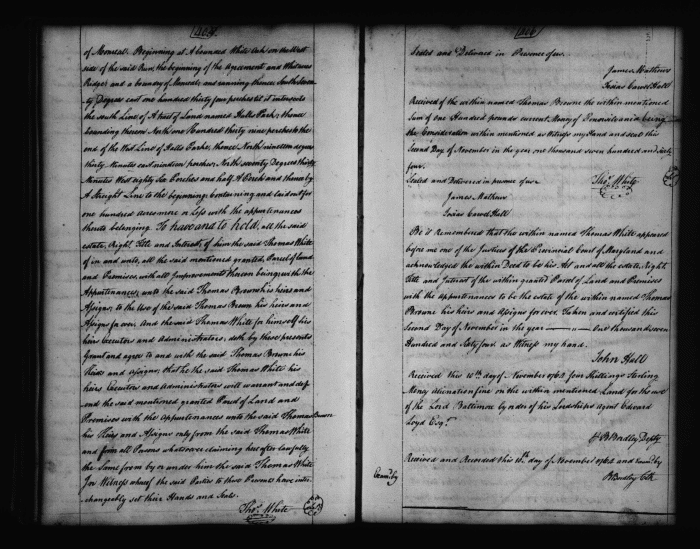 of Monreal. Beginning at A bounded White Oak on the West
side of the said Run, the beginning of the Agreement and Whitacres
Ridge and a boundy of Monreal: and running thence South Seven
ty Degrees east one hundred thirty four perches till it intersects
the South Line of A tract of Land named Halls Park; thence
bounding thereon North one Hundred thirty nine perches to the
end of the West Line of Halls Parke; thence North nineteen degrees
thirty Minutes east nineteen perches; North seventy Degrees thirty
Minutes West eighty Six Perches and half A Perch and thence by
A Streight Line to the beginning: Containing and laid out for
one hundred acres more or Less with the appurtenances
thereto belonging. To have and to hold, all the said
estate, Right, Title and Interest of him the said Thomas White
of in and unto, all the said mentioned granted, Parcel of Land
and Premises, with all Improvements thereon being with the
Appurtenances, unto the said Thomas Brown his heirs and
Assigns; to the use of the said Thomas Brown his heirs and
Assigns for ever. And the said Thomas White for himself his
heirs Executors and Administrators; doth by these presents
Grant and agree to and with the said Thomas Brown his
Heirs and Assigns; that he the said Thomas White his
heirs Executors and Administrators will warrant and def
end the said mentioned granted Parcel of Land and
Premises with the Appurtenances unto the said Thomas Brown
his Heirs and Assigns only from the said Thomas White
and from all Persons whatsoever claiming hereafter Lawfully
the Same from by or under him the said Thomas White
In Witness whereof the said Parties to these Presents have inter
changeably set their Hands and Seals.
Thos. White
Sealed and Delivered in Presence of us.
James Mathews
Isaias Carvel Hall
Received of the within named Thomas Browne the within mentioned
Sum of One Hundred pounds current Money of Pennsilvania being
the Consideration within mentioned as Witness my Hand and seal this
Second Day of November in the year one thousand seven hundred and Sixty
four.
Thos. White
Sealed and Delivered in presence of us
James Mathews
Isaias Carvel Hall
Be it Remembered that the within named Thomas White appeared
before me one of the Justices of the Provincial Court of Maryland and
acknowledged the within Deed to be his Act and all the estate, Right,
Title and Interest of the within granted Parcel of Land and Premises
with the appurtenances to be the estate of the within named Thomas
Browne his heirs and Assigns for ever. Taken and certified this
Second Day of November in the year One thousand seven
Hundred and Sixty four as Witness my hand.
John Hall
Received this 10th day of November 1764 four Shillings Sterling
Money Alienation fine on the within mentioned Land for the use
of the Lord Baltimore by order of his Lordships Agent Edward
Loyd Esqr.
Bradley Depty
Received and Recorded this 10th day of November 1764 and Examd. by
Bradley Clk
Examd. by